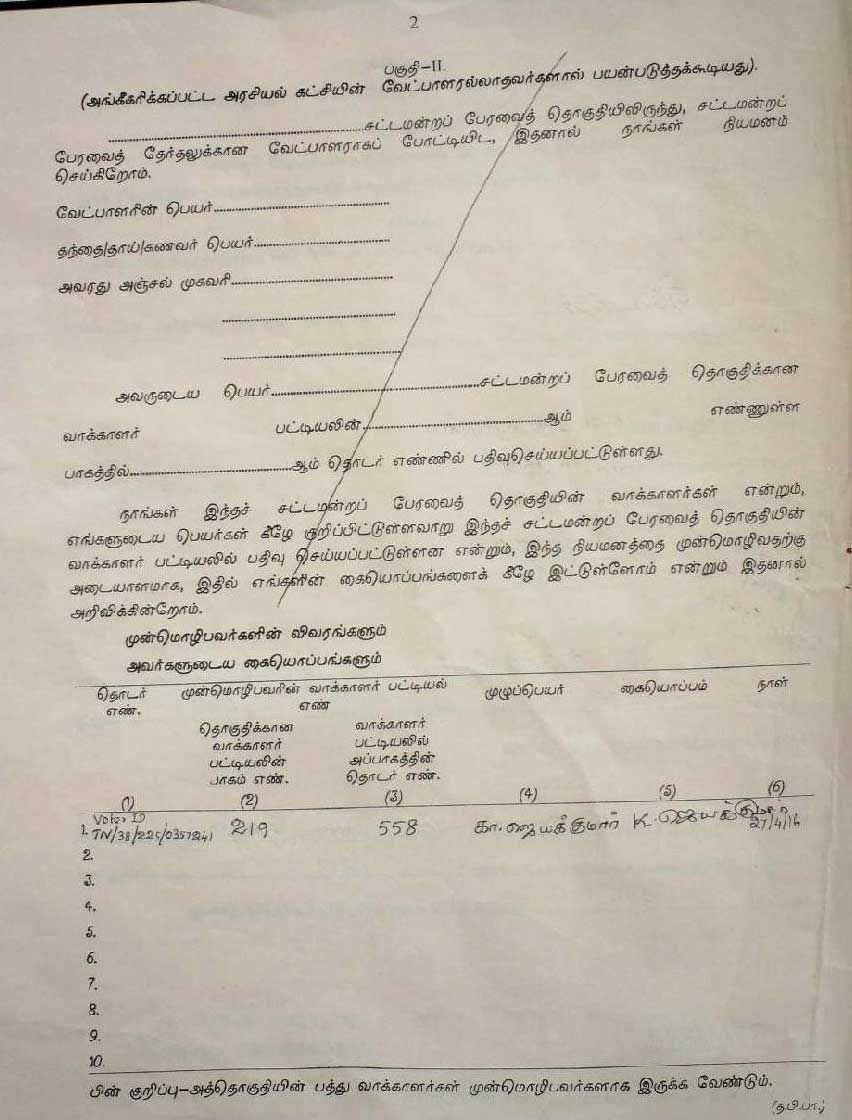 2
பகுதி-II.
(அங்கீகரிக்கப்பட்ட அரசியல் கட்சியின் வேட்பாளரல்லாதவர்களால் பயன்படுத்தக்கூடியது).
....................சட்டமன்றப் பேரவைத் தொகுதியிலிருந்து, சட்டமன்றப்
பேரவைத் தேர்தலுக்கான வேட்பாளராகப் போட்டியிட, இதனால் நாங்கள் நியமனம்
செய்கிறோம்.
வேட்பாளரின் பெயர்....................
தந்தை/தாய்/கணவர் பெயர்....................
அவரது அஞ்சல் முகவரி....................
....................
....................
அவருடைய பெயர்....................சட்டமன்றப் பேரவைத் தொகுதிக்கான
வாக்காளர் பட்டியலின்....................ஆம் எண்ணுள்ள
பாகத்தில்....................ஆம் தொடர் எண்ணில் பதிவுசெய்யப்பட்டுள்ளது.
நாங்கள் இந்தச் சட்டமன்றப் பேரவைத் தொகுதியின் வாக்காளர்கள் என்றும்,
எங்களுடைய பெயர்கள் கீழே குறிப்பிட்டுள்ளவாறு இந்தச் சட்டமன்றப் பேரவைத் தொகுதியின்
வாக்காளர் பட்டியலில் பதிவு செய்யப்பட்டுள்ளன என்றும், இந்த நியமனத்தை முன்மொழிவதற்கு
அடையாளமாக, இதில் எங்களின் கையொப்பங்களைக் கீழே இட்டுள்ளோம் என்றும் இதனால்
அறிவிக்கின்றோம்.
முன்மொழிபவர்களின் விவரங்களும்
அவர்களுடைய கையொப்பங்களும்
தொடர் முன்மொழிபவரின் வாக்காளர் பட்டியல் முழுப்பெயர் கையொப்பம் நாள்
எண். எண்
தொகுதிக்கான வாக்காளர்
வாக்காளர் பட்டியலில்
பட்டியலின் அப்பாகத்தின்
பாகம் எண். தொடர் எண்.
(1) (2) (3) (4) (5) (6)
Voter ID
1. TN/38/225/0357241 219 558 கா. ஜெயக்குமார் K. ஜெயக்குமார் 27/4/16
2.
3.
4.
5.
6.
7.
8.
9.
10.
பின் குறிப்பு-அத்தொகுதியின் பத்து வாக்காளர்கள் முன்மொழிபவர்களாக இருக்க வேண்டும்.
(தபி.பா.)